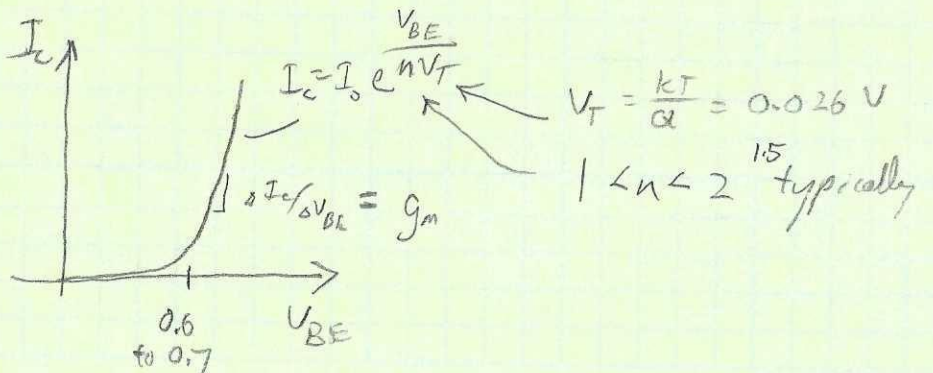 I_c
I_c = I_o e^(V_BE / nV_T)
V_T = kT/Q = 0.026 V
1 < n < 2 1.5 typically
ΔI_c/ΔV_BE = g_m
0.6
to 0.7
V_BE